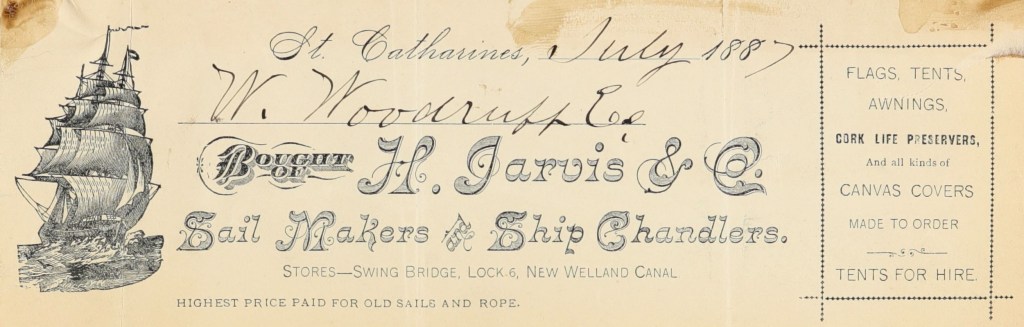 St. Catharines, July 1887
W. Woodruff Esq
BOUGHT OF H. Jarvis & Co.
Sail Makers and Ship Chandlers.
STORES—SWING BRIDGE, LOCK 6, NEW WELLAND CANAL
HIGHEST PRICE PAID FOR OLD SAILS AND ROPE.
FLAGS, TENTS,
AWNINGS,
CORK LIFE PRESERVERS,
And all kinds of
CANVAS COVERS
MADE TO ORDER
TENTS FOR HIRE.